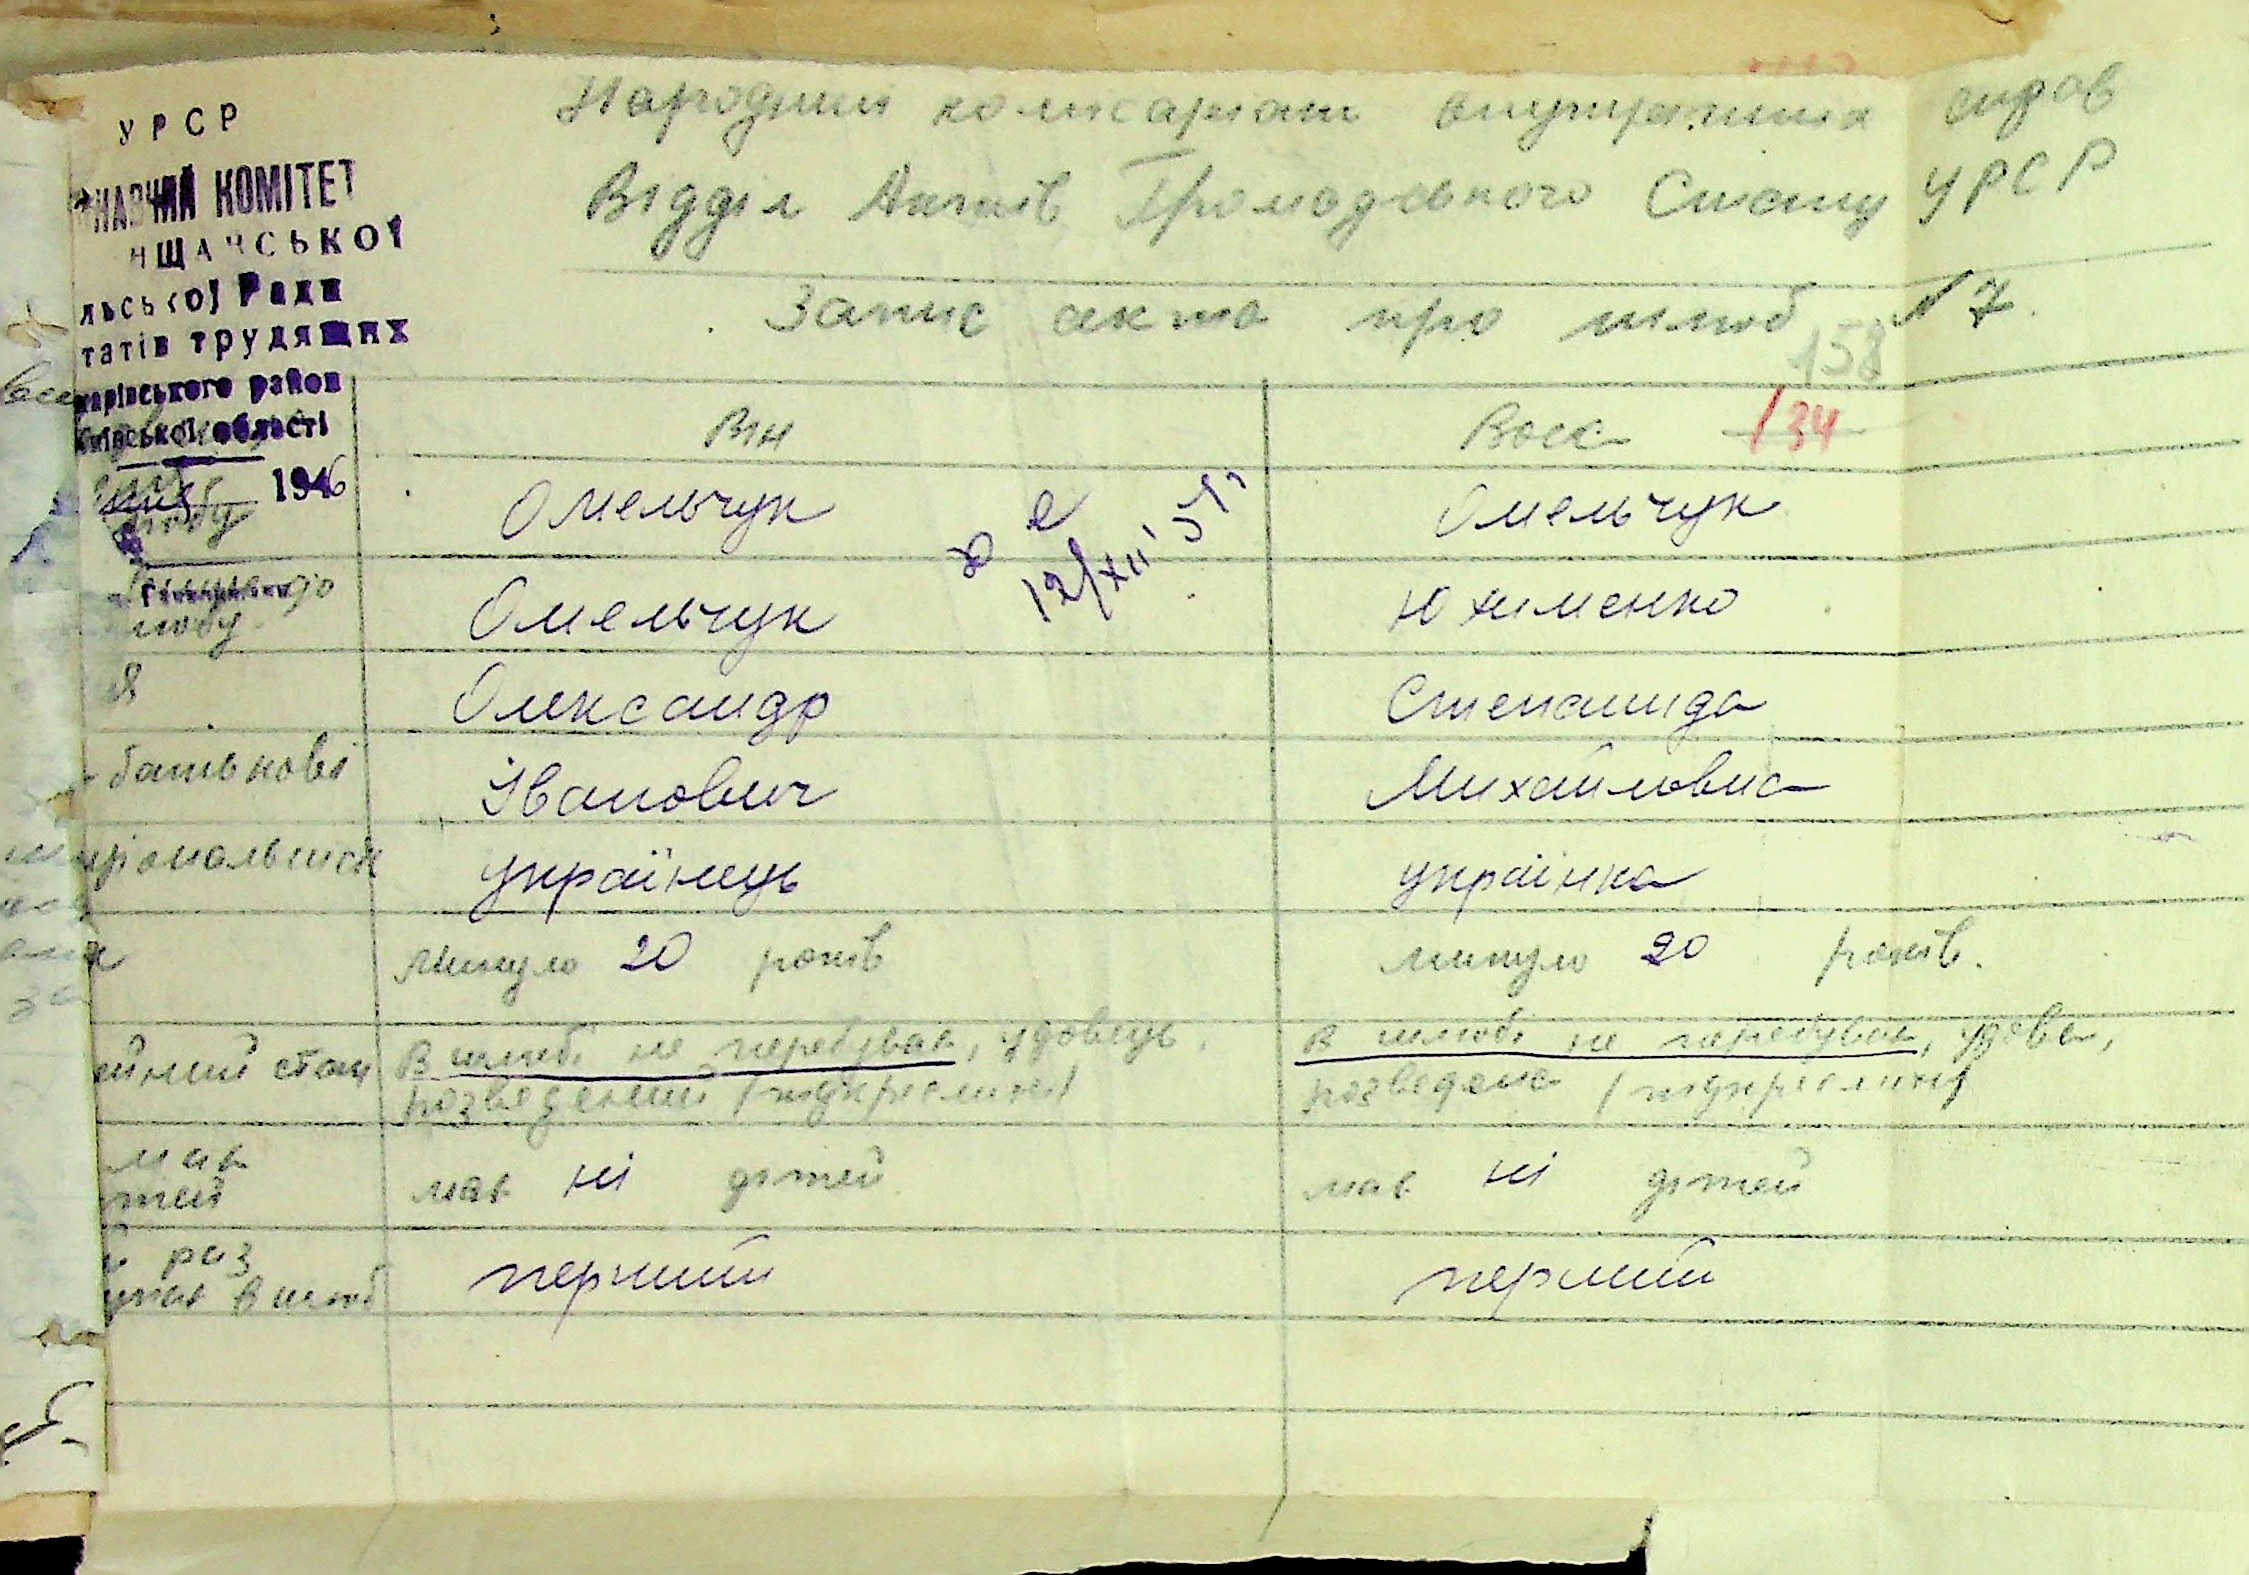 УРСР
НАВЧИЙ КОМІТЕТ
НЩАНСЬКОЇ
льської Ради
татів трудящих
арівського району
Київської області
1946
Народний комісаріат внутрішніх справ
Відділ Актів Громадського Стану УРСР
Запис акта про шлюб N 7.
158
134
Він Вона
шлюбу Омельчук Омельчук
12/XII 51
до шлюбу Омельчук Юхименко
я Олександр Степанида
батькові Іванович Михайловна
ціональність українець українка
минуло 20 років минуло 20 років.
ейний стан В шлюбі не перебував, удовець, В шлюбі не перебувала, удова,
розведений (підкреслити) розведена (підкреслити)
має
тей має ні дітей має ні дітей
раз
в шлюб перший перший